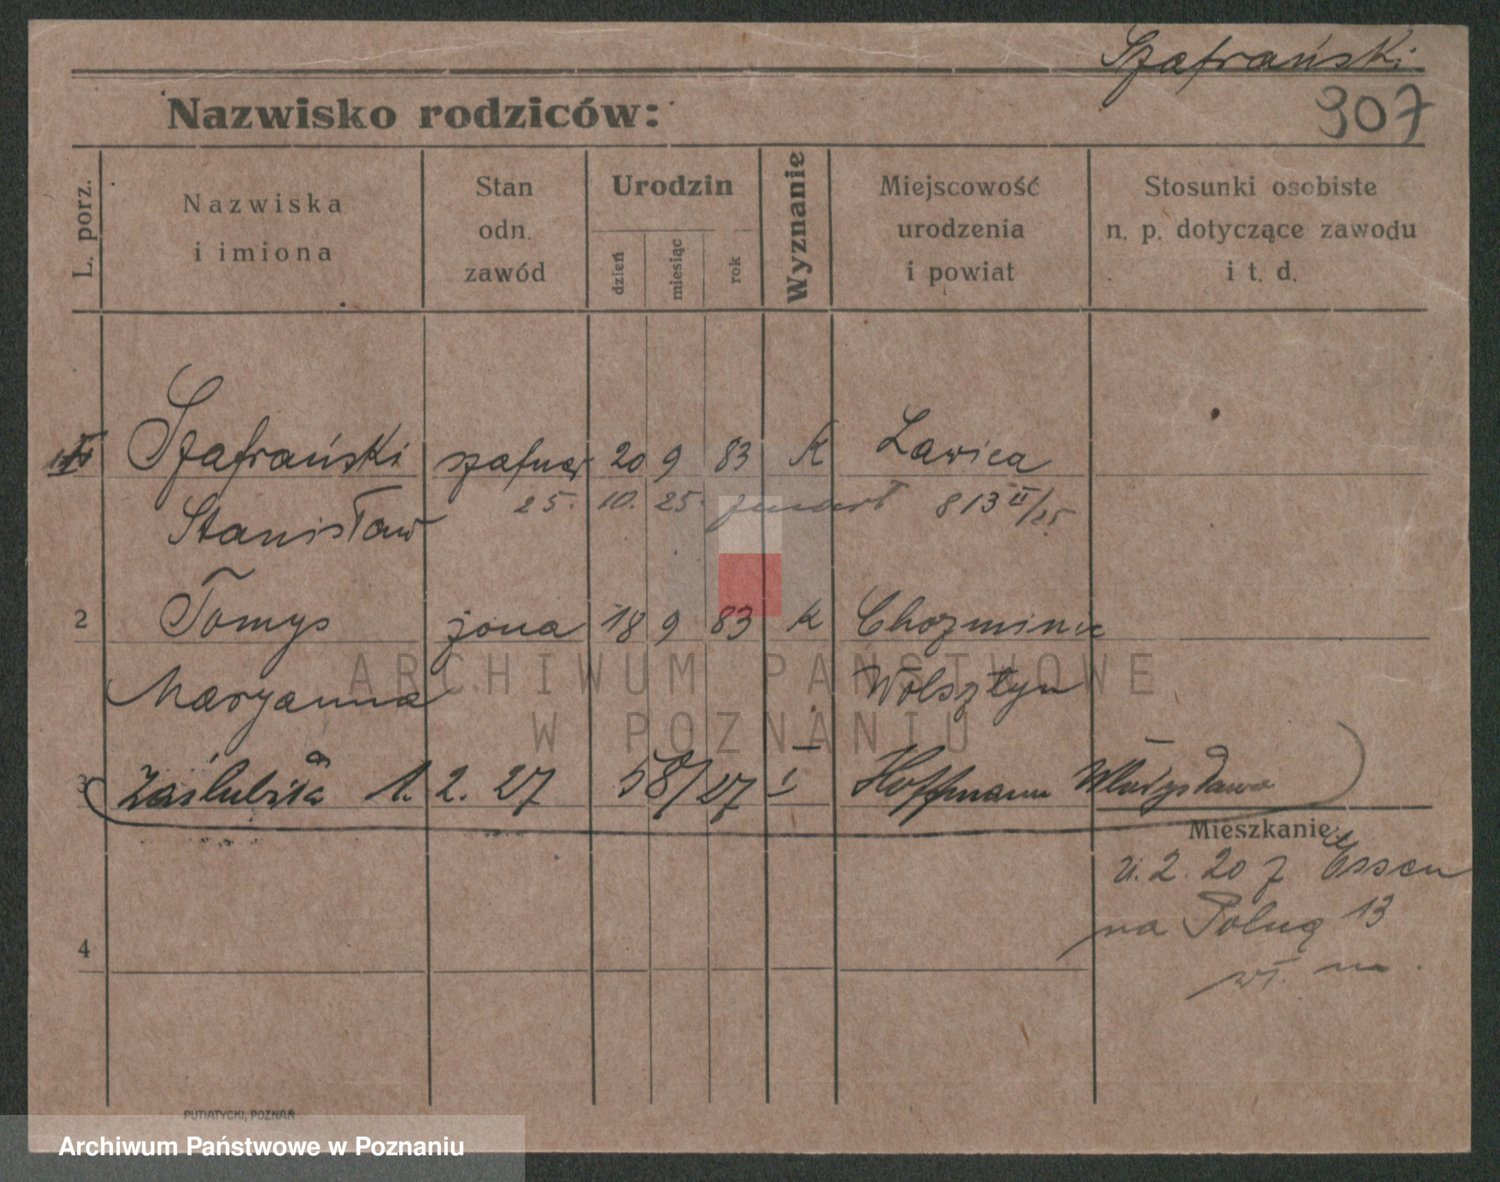 Szafrański
307
Nazwisko rodziców:
L. porz.
Nazwiska
i imiona
Stan
odn.
zawód
Urodzin
dzień
miesiąc
rok
Wyznanie
Miejscowość
urodzenia
i powiat
Stosunki osobiste
n. p. dotyczące zawodu
i t. d.
Szafrański szafner 20 9 83 K Ławica
25. 10. 25. zmarł 813 II/25
Stanisław
2 Tomys żona 18 9 83 K
Maryanna Wolsztyn
ARCHIWUM PAŃSTWOWE
W POZNANIU
3 Zaślubiła 1. 2. 27 58/27 I Hoffmann Władysława
Mieszkanie:
2. 20 z Essen
na Polną 13
4
PUTIATYCKI, POZNAŃ
Archiwum Państwowe w Poznaniu